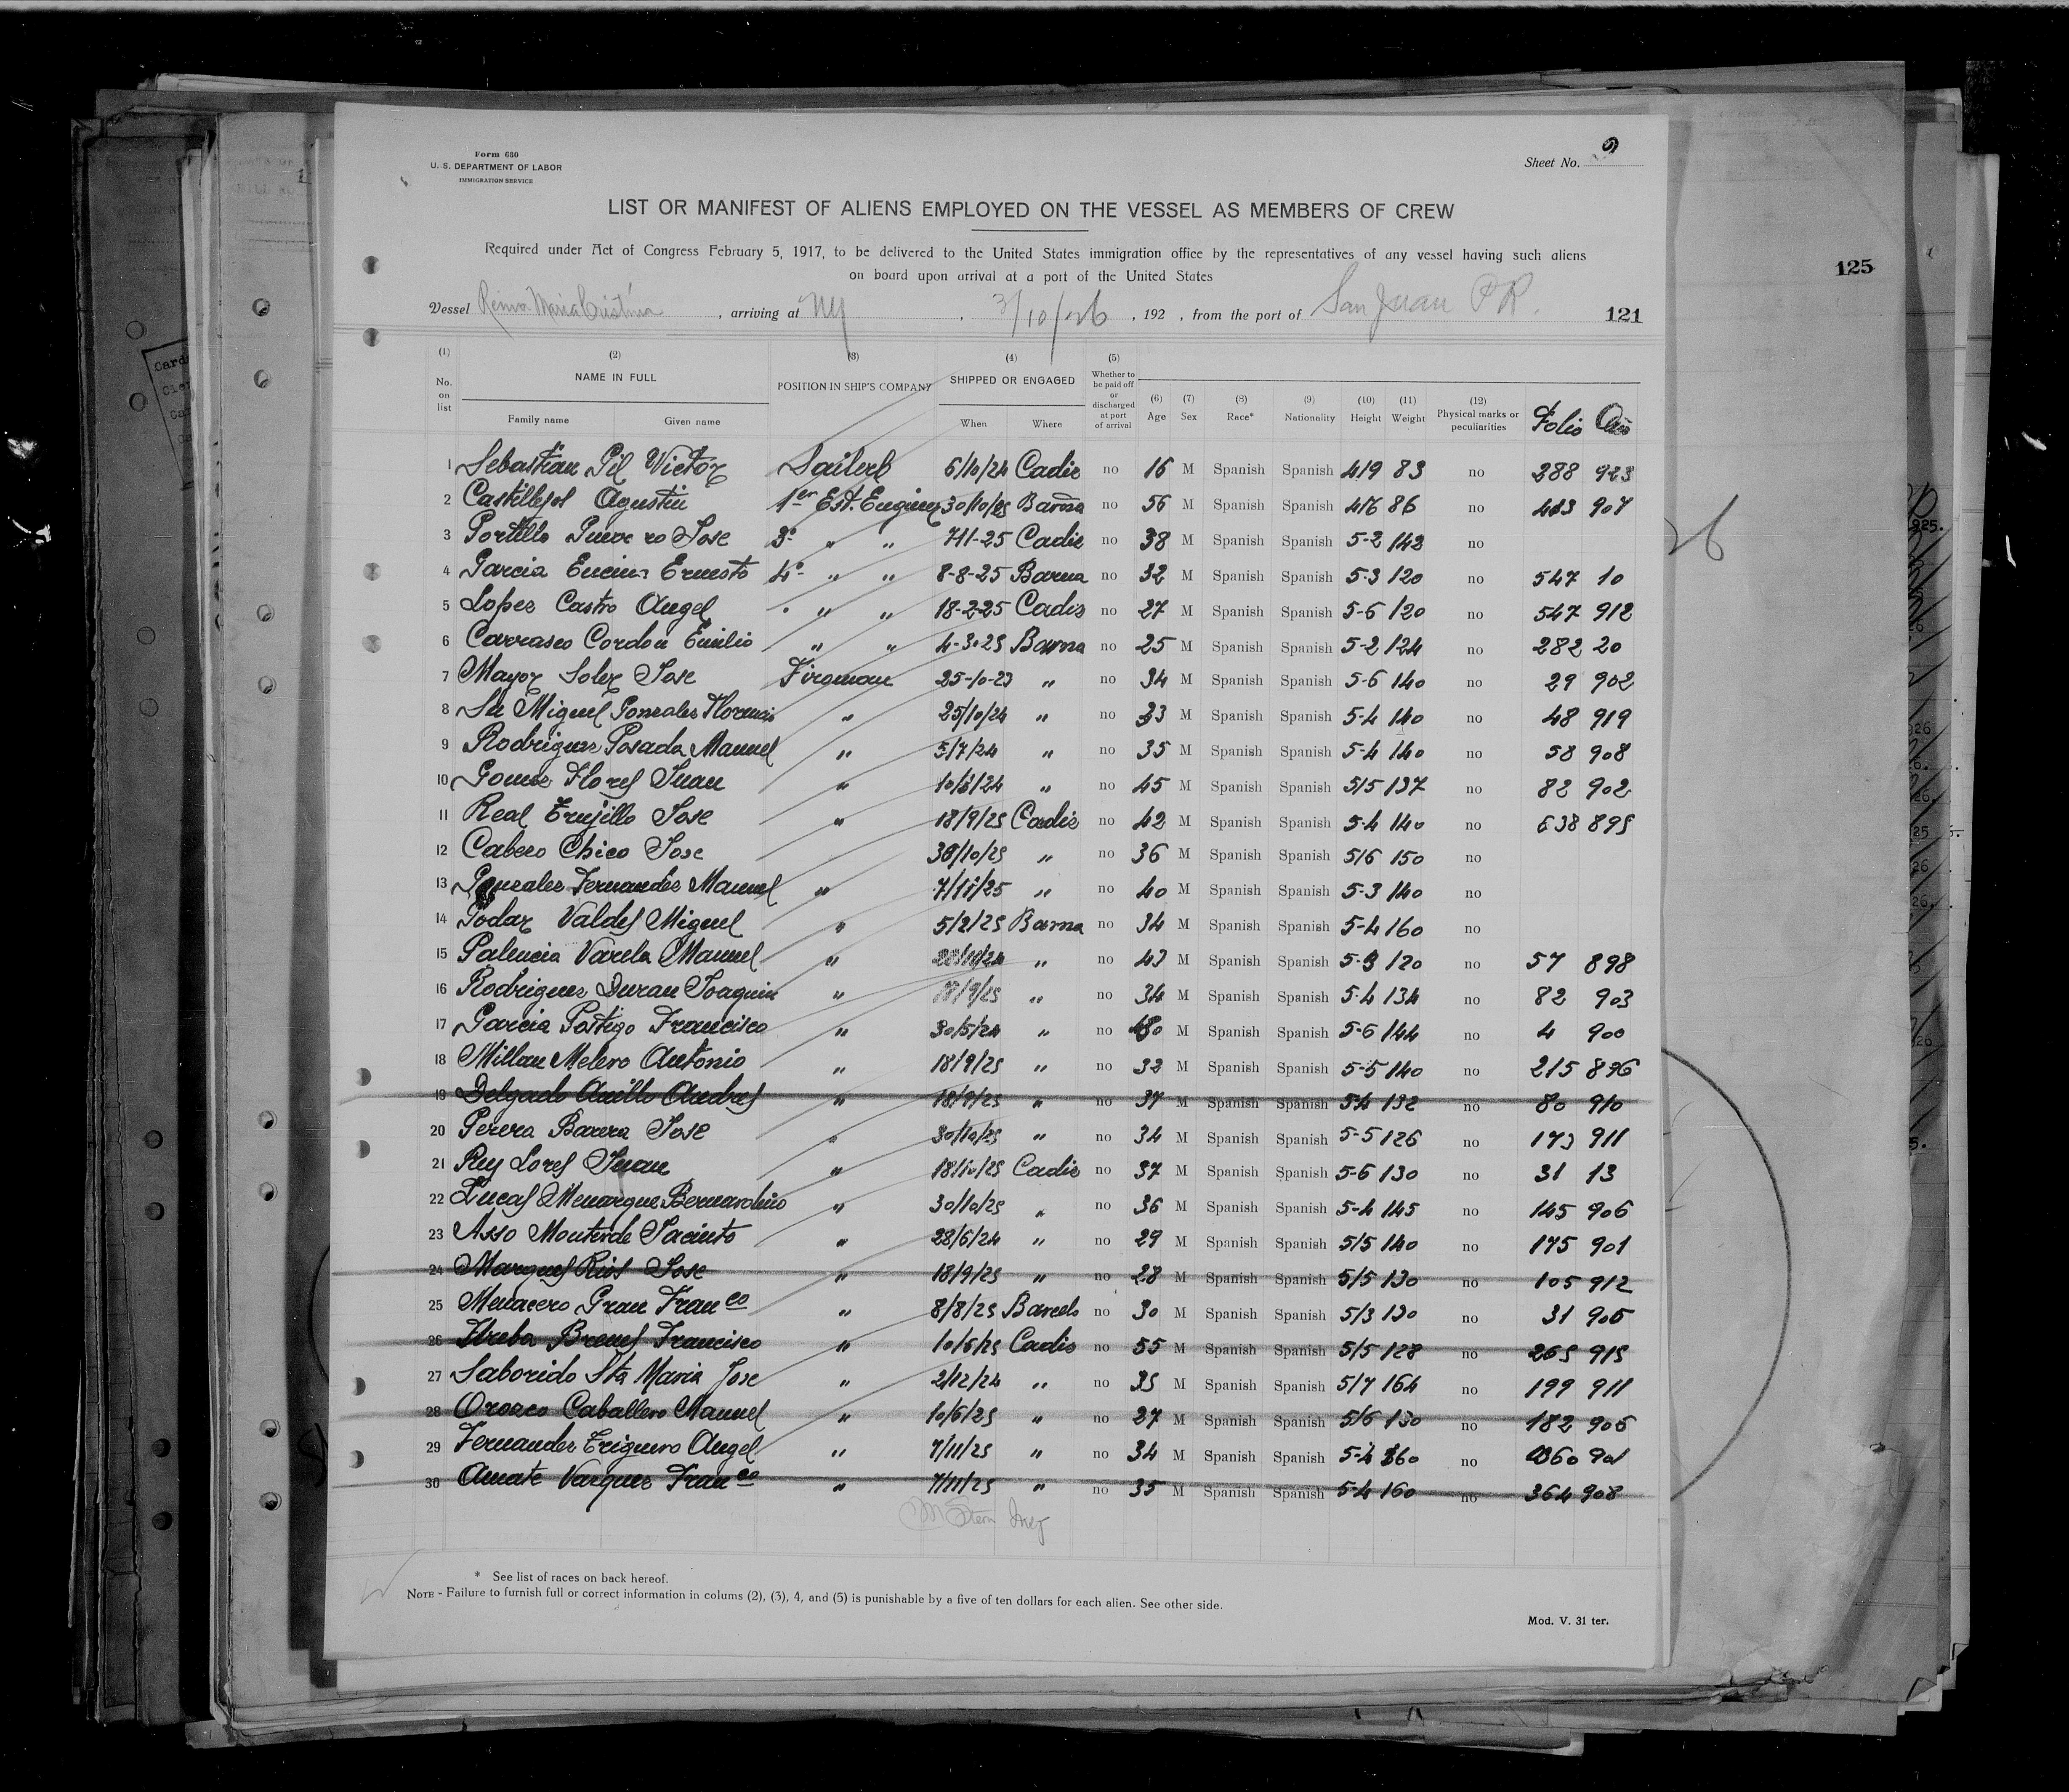 Form 680
U. S. DEPARTMENT OF LABOR
IMMIGRATION SERVICE
Sheet No. 9
LIST OR MANIFEST OF ALIENS EMPLOYED ON THE VESSEL AS MEMBERS OF CREW
Required under Act of Congress February 5, 1917, to be delivered to the United States immigration office by the representatives of any vessel having such aliens
on board upon arrival at a port of the United States
125
Vessel Reina Maria Cristina, arriving at NY, 3/10/26, 192 , from the port of San Juan P R. 121
(1) (2) (3) (4) (5)
No. on list NAME IN FULL POSITION IN SHIP'S COMPANY SHIPPED OR ENGAGED Whether to be paid off or discharged at port of arrival (6) Age (7) Sex (8) Race* (9) Nationality (10) Height (11) Weight (12) Physical marks or peculiarities Folio
Family name Given name When Where
1 Sebastian Gil Victor 6/10/24 Cadiz no 16 M Spanish Spanish 4/9 83 no 288 923
2 Agustin 1er Est. Engineer 30/10/25 Barna no 56 M Spanish Spanish 4/6 86 no 907
3 Portillo Jose 3º " " 7-11-25 Cadiz no 38 M Spanish Spanish 5-2 142 no
4 Garcia Encina Ernesto 4º " " 8-8-25 Barna no 32 M Spanish Spanish 5-3 120 no 547 10
5 Lopez Castro Angel " " " 18-2-25 Cadiz no 27 M Spanish Spanish 5-6 120 no 547 912
6 Carrasco Cordon Emilio " " 4-3-25 Barna no 25 M Spanish Spanish 5-2 124 no 282 20
7 Mayor Soler Jose Fireman 25-10-23 " no 34 M Spanish Spanish 5-6 140 no 29 902
8 Sn Miguel Gonzalez Florencio " 25/10/24 " no 33 M Spanish Spanish 5-4 140 no 48 919
9 Rodriguez Posada Manuel " 5/7/24 " no 35 M Spanish Spanish 5-4 140 no 58 908
10 Gomez Flores Juan " 24 " no 45 M Spanish Spanish 5/5 137 no 82 902
11 Real Trujillo Jose " 18/9/25 Cadiz no 42 M Spanish Spanish 5-4 140 no 638 895
12 Cabero Chico Jose 30/10/25 " no 36 M Spanish Spanish 5/6 150 no
13 Gonzalez Fernandez Manuel " 7/11/25 " no 40 M Spanish Spanish 5-3 140 no
14 Godar Valdes Miguel " 5/2/25 Barna no 34 M Spanish Spanish 5-4 160 no
15 Palencia Varela Manuel " " no 43 M Spanish Spanish 5-3 120 no 57 898
16 Rodriguez Duran Joaquin " 18/9/25 " no 34 M Spanish Spanish 5-4 134 no 82 903
17 Garcia Postigo Francisco " 30/5/24 " no M Spanish Spanish 5-6 144 no 4 900
18 Millan Melero Antonio " 18/9/25 " no 32 M Spanish Spanish 5-5 140 no 215 896
19 Delgado Anillo Andres " 18/9/25 " no 37 M Spanish Spanish 5-4 132 no 80 910
20 Perera Barera Jose " 30/10/25 " no 34 M Spanish Spanish 5-5 126 no 173 911
21 Rey Lores Juan " 18/10/25 Cadiz no 37 M Spanish Spanish 5-6 130 no 31 13
22 Lucas Menarque Bernardino " 30/10/25 " no 36 M Spanish Spanish 5-4 145 no 145 906
23 Asso Monterde Jacinto " 28/6/24 " no 29 M Spanish Spanish 5/5 140 no 175 901
24 Marques Rios Jose " 18/9/25 " no 28 M Spanish Spanish 5/5 130 no 105 912
25 Menacero Grau Franco " 8/8/25 Barcelo no 30 M Spanish Spanish 5/3 130 no 31 905
26 Brenes Francisco " 10/6/25 Cadiz no 55 M Spanish Spanish 5/5 128 no 265 915
27 Saborido Sta Maria Jose " 2/12/24 " no 35 M Spanish Spanish 5/7 164 no 199 911
28 Orozco Caballero Manuel " 10/6/25 " no 27 M Spanish Spanish 5/6 130 no 182 905
29 Fernandez Triguero Angel " 7/11/25 " no 34 M Spanish Spanish 5-4 160 no 901
30 Amate Vazquez Franco " 7/11/25 " no 35 M Spanish Spanish 5-4 160 no 364 908
Stern Insp
* See list of races on back hereof.
NOTE - Failure to furnish full or correct information in colums (2), (3), 4, and (5) is punishable by a five of ten dollars for each alien. See other side.
Mod. V. 31 ter.